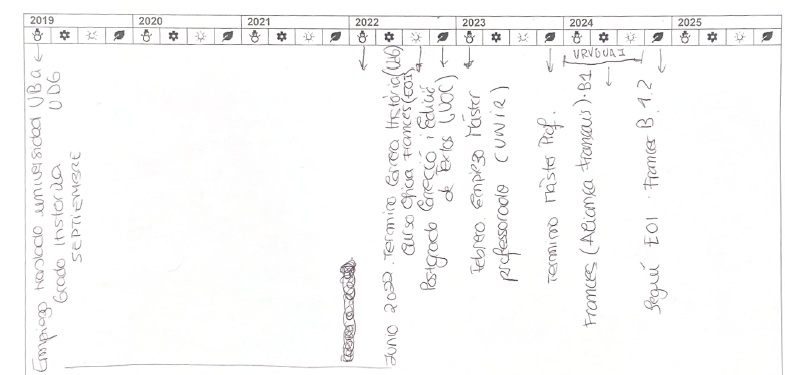 2019 2020 2021 2022 2023 2024 2025
URUGUAI
Empiezo traslado universidad UBa
UDG
Grado Historia
SEPTIEMBRE
Junio 2022. Termino Carrera Història (UdG)
Curso Oficial Francés (EOI)
Postgrado Correcció i Edició
de Textos (UOC)
Febrero. Empiezo Máster
professorado (UNIR)
Termino Màster Prof.
Frances (Aliança français). B1
Seguí EOI. Frances B.1.2